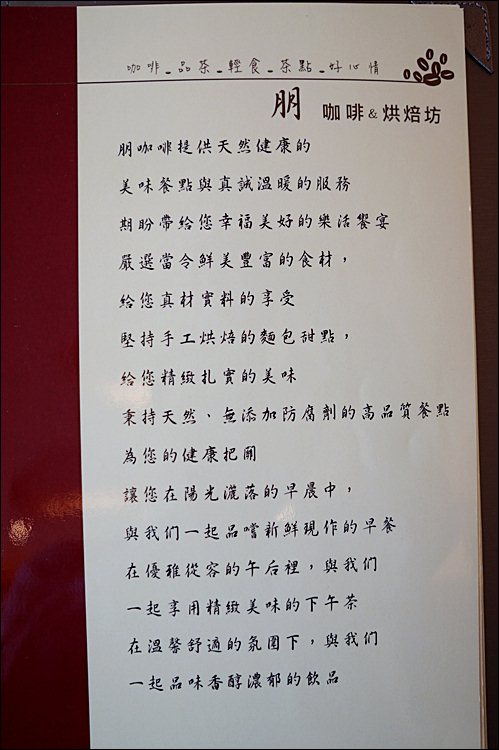 咖啡_品茶_輕食_茶點_好心情
朋 咖啡&烘焙坊
朋咖啡提供天然健康的
美味餐點與真誠溫暖的服務
期盼帶給您幸福美好的樂活饗宴
嚴選當令鮮美豐富的食材，
給您真材實料的享受
堅持手工烘焙的麵包甜點，
給您精緻扎實的美味
秉持天然、無添加防腐劑的高品質餐點
為您的健康把關
讓您在陽光灑落的早晨中，
與我們一起品嚐新鮮現作的早餐
在優雅從容的午后裡，與我們
一起享用精緻美味的下午茶
在溫馨舒適的氛圍下，與我們
一起品味香醇濃郁的飲品